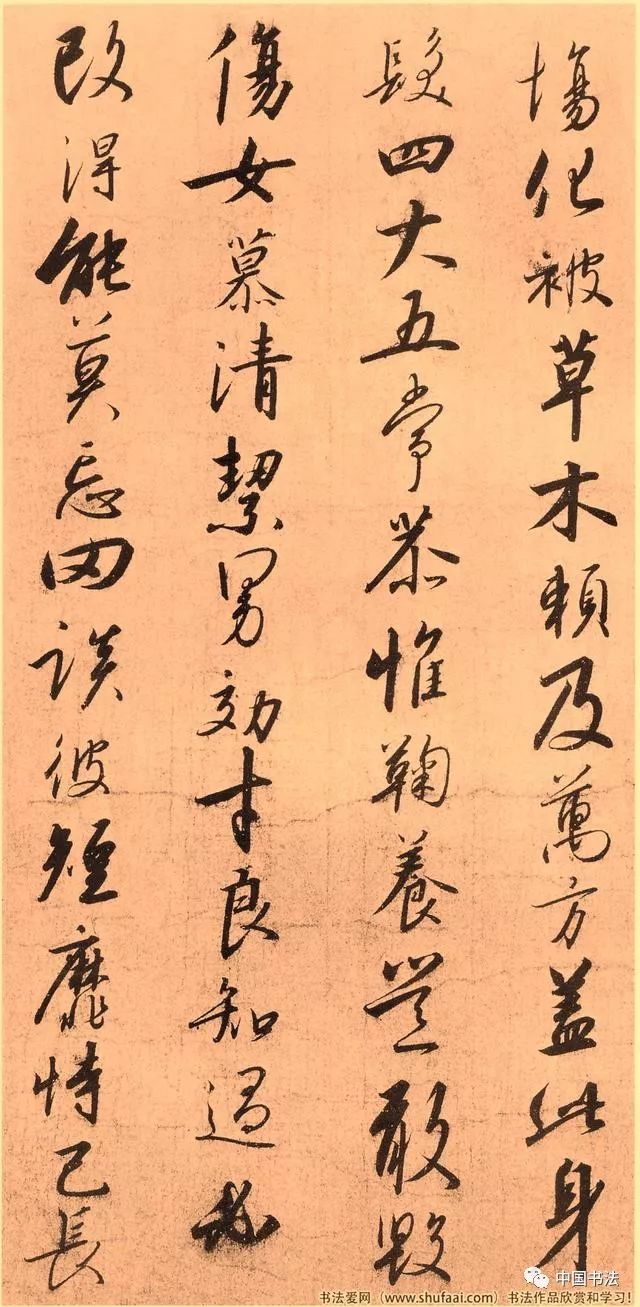 塲化被草木賴及萬方盖此身
髮四大五常恭惟鞠養豈敢毀
傷女慕清絜男効才良知過必
改得能莫忘罔談彼短靡恃己長
中国书法
书法爱网（www.shufaai.com）书法作品欣赏和学习！